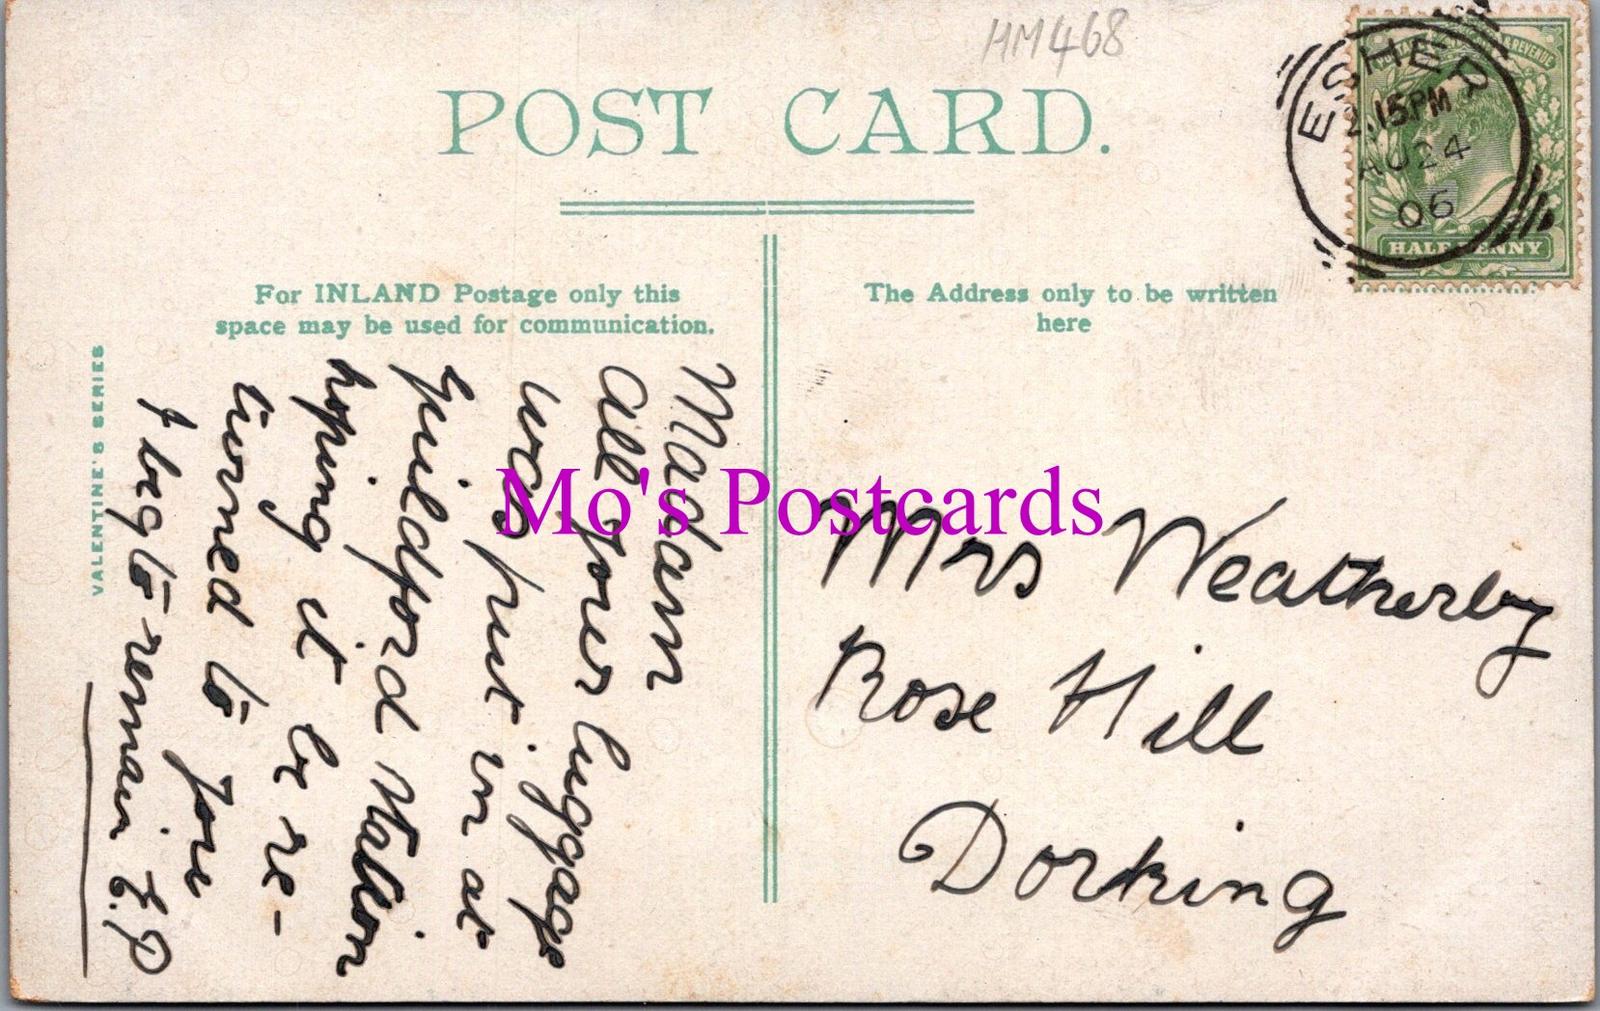 HM468
POST CARD.
ESHER
2.15PM
AU 24
06
POSTAGE & REVENUE
HALFPENNY
For INLAND Postage only this
space may be used for communication.
The Address only to be written
here
VALENTINE'S SERIES
Madam
All your luggage
was put in at
Guildford Station
hoping it be re-
turned to you
I beg to remain E.P
Mrs Weatherby
Rose Hill
Dorking
Mo's Postcards